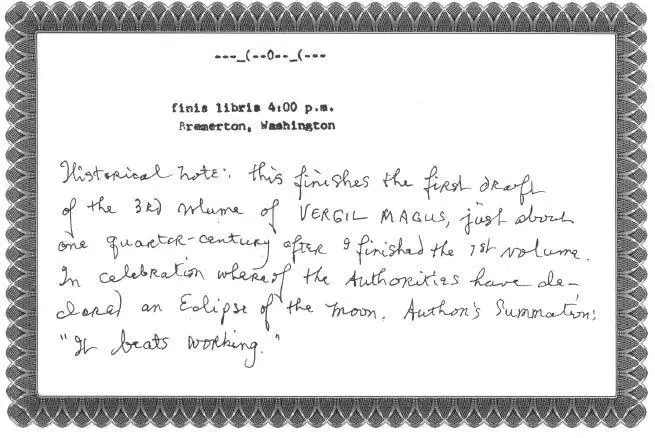 ---_(--0--_(---
finis libris 4:00 p.m.
Bremerton, Washington
Historical note: this finishes the first draft
of the 3rd volume of VERGIL MAGUS, just about
one quarter-century after I finished the 1st volume.
In celebration whereof the Authorities have de-
clared an Eclipse of the moon. Author's Summation:
"It beats working."